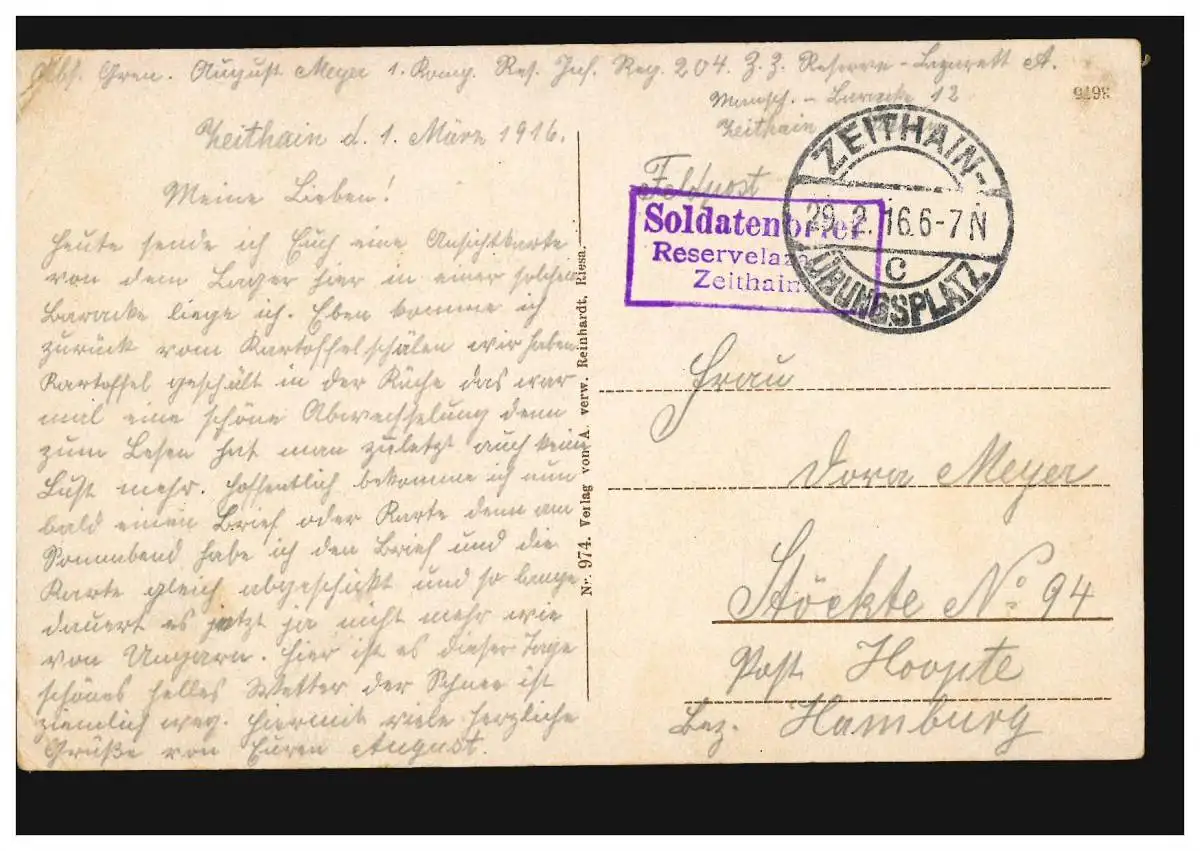 Abs. Gren. August Meyer 1. Komp. Res. Inf. Reg. 204. Z. Z. Reserve-Lazarett A.
Mansch. - Baracke 12
Zeithain
9198
Zeithain d. 1. März 1916.
Meine Lieben!
Heute sende ich Euch eine Ansichtkarte
von dem Lager hier in einer solchen
Baracke liege ich. Eben komme ich
zurück vom Kartoffelschälen wir haben
Kartoffel geschält in der Küche das war
mal eine schöne Abwechselung denn
zum Lesen hat man zuletzt auch keine
Lust mehr. Hoffentlich bekomme ich nun
bald einen Brief oder Karte denn am
Sonnabend habe ich den Brief und die
Karte gleich abgeschickt und so lange
dauert es jetzt ja nicht mehr wie
von Ungarn. Hier ist es dieser Tage
schönes helles Wetter der Schnee ist
ziemlich weg. Hiermit viele herzliche
Grüße von Euren August.
Nr. 974. Verlag von A. verw. Reinhardt, Riesa.
Feldpost
Soldatenbrief
Reservelaza
Zeithain
ZEITHAIN-
29.2.16.6-7N
C
ÜBUNGSPLATZ
Frau
Dora Meyer
Stöckte No. 94
Post Hoopte
Bez. Hamburg